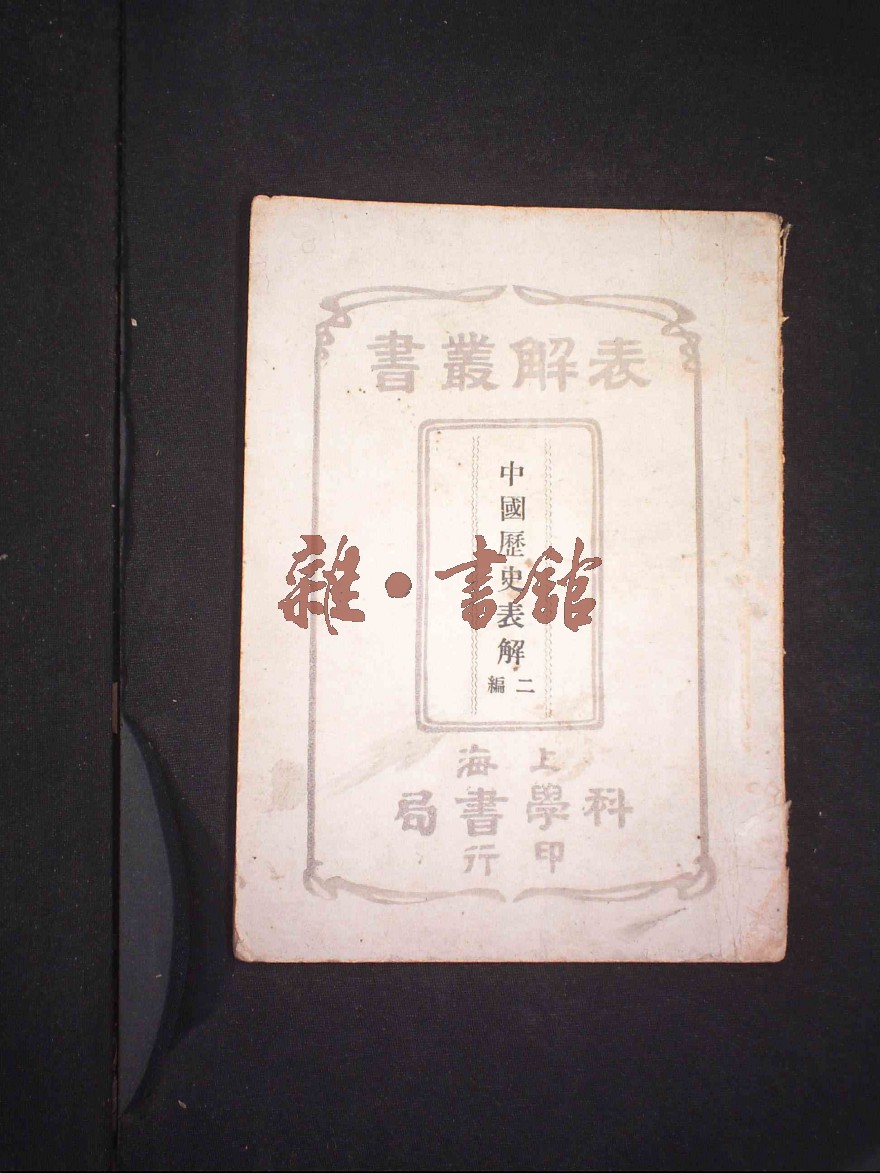 表解叢書
中國歷史表解
二編
上海
科學書局
印行
雜·書館